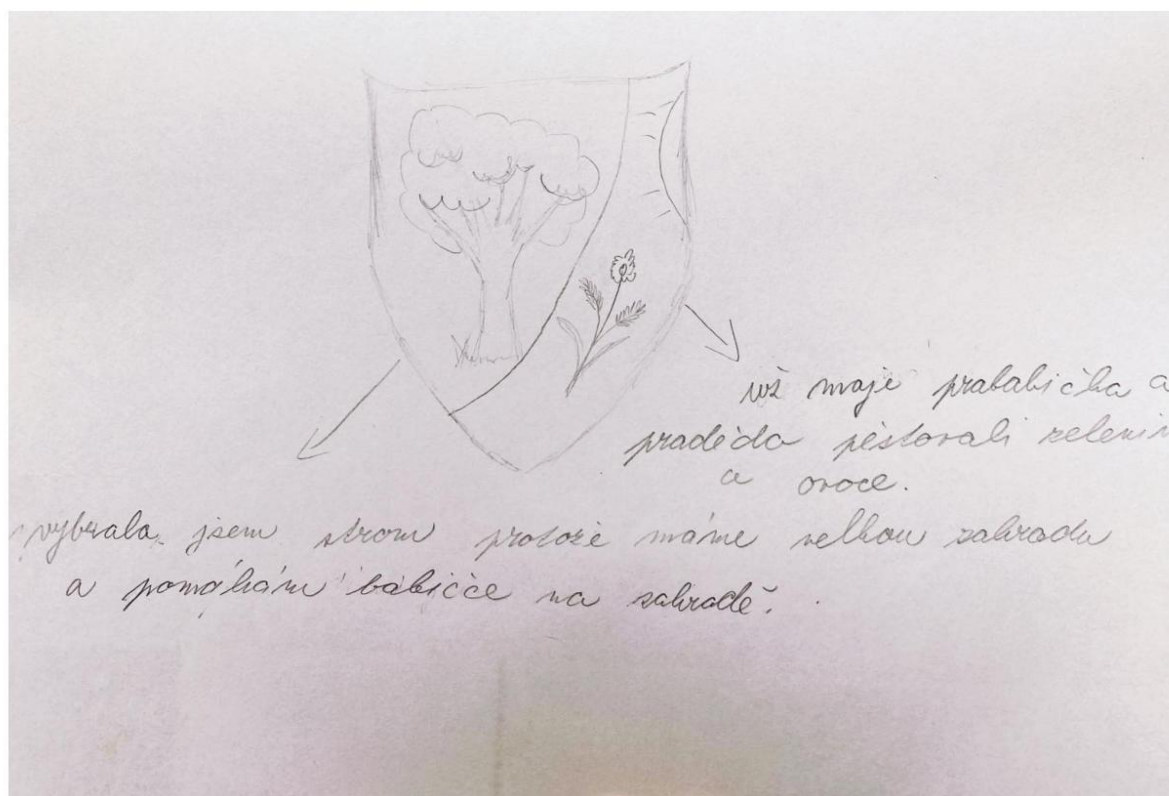 už moje prababička a
praděda pěstovali zelenin
a ovoce.
vybrala jsem strom protože máme velkou zahradu
a pomáhám babičce na zahradě.